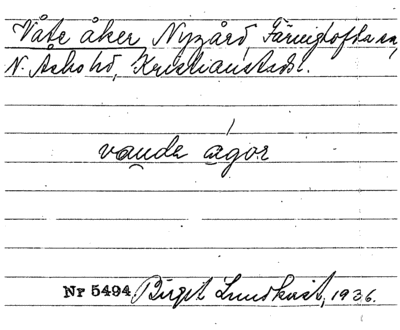 Våte åker, Nygård, Färingtofta sn,
N. Åsbo hd, Kristianstads l.
vaude ågor
Nr 5494 Birgit Lundkvist, 1936.